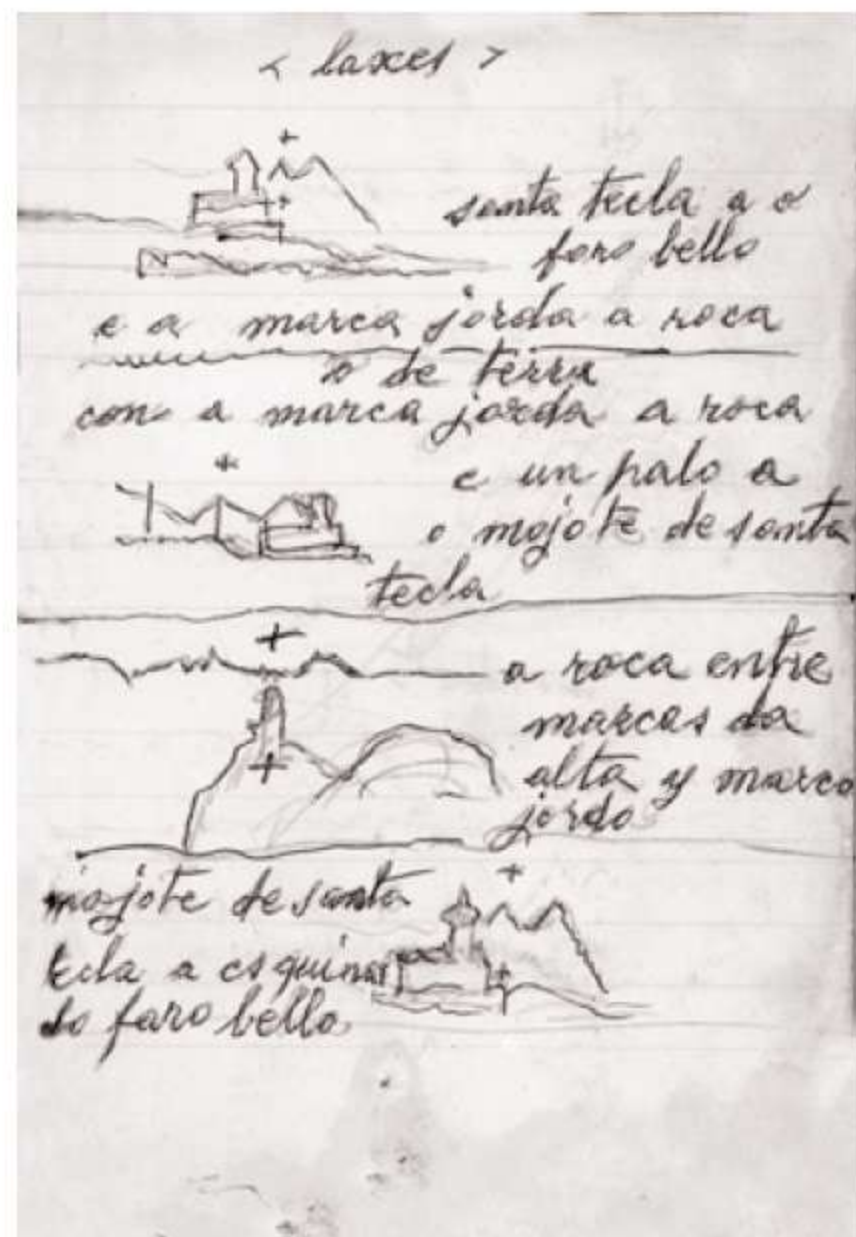 < laxes >
santa tecla a o
faro bello
e a marca jorda a roca
o de terra
con a marca jorda a roca
e un palo a
o mojote de santa
tecla
a roca entre
marcas da
alta y marco
jordo
mojote de santa
tecla a esquina
do faro bello